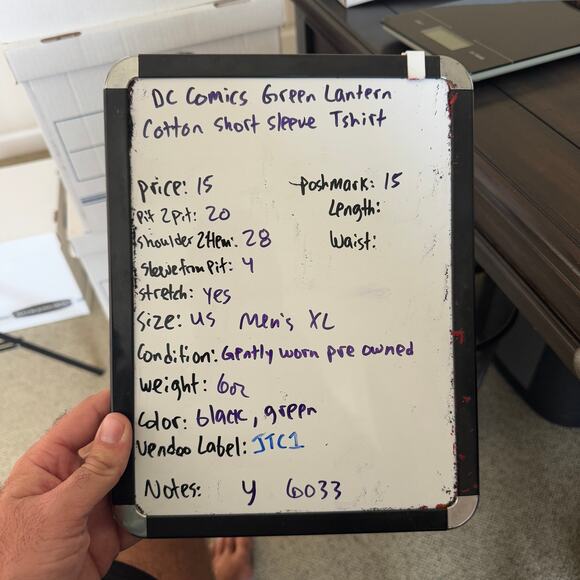 DC Comics Green Lantern
Cotton Short Sleeve Tshirt
price: 15
poshmark: 15
Pit 2 pit: 20
Length:
Shoulder 2 Hem: 28
Waist:
Sleeve from pit: 4
stretch: yes
Size: US Men's XL
Condition: Gently worn pre owned
weight: 6oz
Color: black, green
Vendoo Label: JTC1
Notes: y 6033